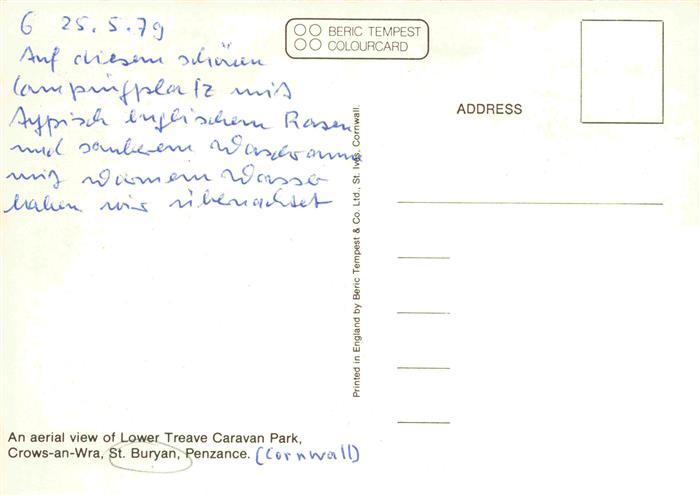 6 25.5.79
Auf diesem schönen
Campingplatz mit
typisch englischem Rasen
und sauberem Waschraum
mit warmem Wasser
haben wir übernachtet
BERIC TEMPEST
COLOURCARD
ADDRESS
Printed in England by Beric Tempest & Co. Ltd., St. Ives, Cornwall.
An aerial view of Lower Treave Caravan Park,
Crows-an-Wra, St. Buryan, Penzance. (Cornwall)